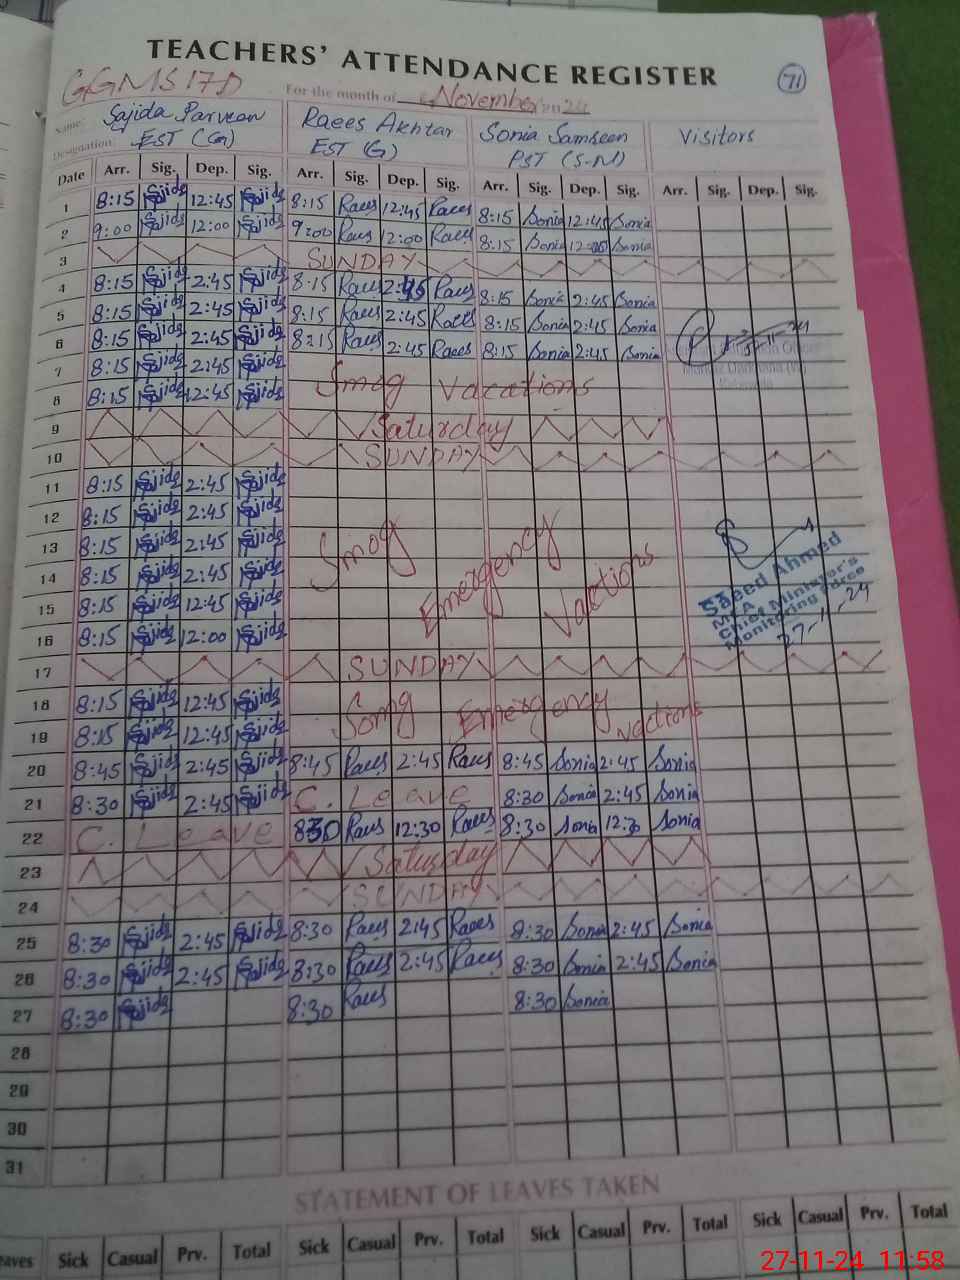 TEACHERS' ATTENDANCE REGISTER
71
GGMS 17D
For the month of November 2024
Name: Sajida Parveen Raees Akhtar Sonia Samreen Visitors
Designation: EST (G) EST (G) PST (S-N)
Date Arr. Sig. Dep. Sig. Arr. Sig. Dep. Sig. Arr. Sig. Dep. Sig. Arr. Sig. Dep. Sig.
1 8:15 Sajida 12:45 Sajida 8:15 Raees 12:45 Raees 8:15 Sonia 12:45 Sonia
2 9:00 Sajida 12:00 Sajida 9:00 Raees 12:00 Raees 8:15 Sonia Sonia
3 SUNDAY
4 8:15 Sajida 2:45 Sajida 8:15 Raees 2:45 Raees 8:15 Sonia 2:45 Sonia
5 8:15 Sajida 2:45 Sajida 8:15 Raees 2:45 Raees 8:15 Sonia 2:45 Sonia
6 8:15 Sajida 2:45 Sajida 8:15 Raees 2:45 Raees 8:15 Sonia 2:45 Sonia
7 8:15 Sajida 2:45 Sajida Smog Vacations
8 8:15 Sajida 12:45 Sajida
9 Saturday
10 SUNDAY
11 8:15 Sajida 2:45 Sajida
12 8:15 Sajida 2:45 Sajida
13 8:15 Sajida 2:45 Sajida Smog Emergency Vactions
14 8:15 Sajida 2:45 Sajida
15 8:15 Sajida 12:45 Sajida
16 8:15 Sajida 12:00 Sajida
Saeed Ahmed
MEA
Chief Minister's
Monitoring Force
27-11-24
17 SUNDAY
18 8:15 Sajida 12:45 Sajida Somg Emergency vactions
19 8:15 Sajida 12:45 Sajida
20 8:45 Sajida 2:45 Sajida 8:45 Raees 2:45 Raees 8:45 Sonia 2:45 Sonia
21 8:30 Sajida 2:45 Sajida C. Leave 8:30 Sonia 2:45 Sonia
22 C. Leave 830 Raees 12:30 Raees 8:30 Sonia 12:30 Sonia
23 Saturday
24 SUNDAY
25 8:30 Sajida 2:45 Sajida 8:30 Raees 2:45 Raees 8:30 Sonia 2:45 Sonia
26 8:30 Sajida 2:45 Sajida 8:30 Raees 2:45 Raees 8:30 Sonia 2:45 Sonia
27 8:30 Sajida 8:30 Raees 8:30 Sonia
28
29
30
31
STATEMENT OF LEAVES TAKEN
eaves Sick Casual Prv. Total Sick Casual Prv. Total Sick Casual Prv. Total Sick Casual Prv. Total
27-11-24 11:58